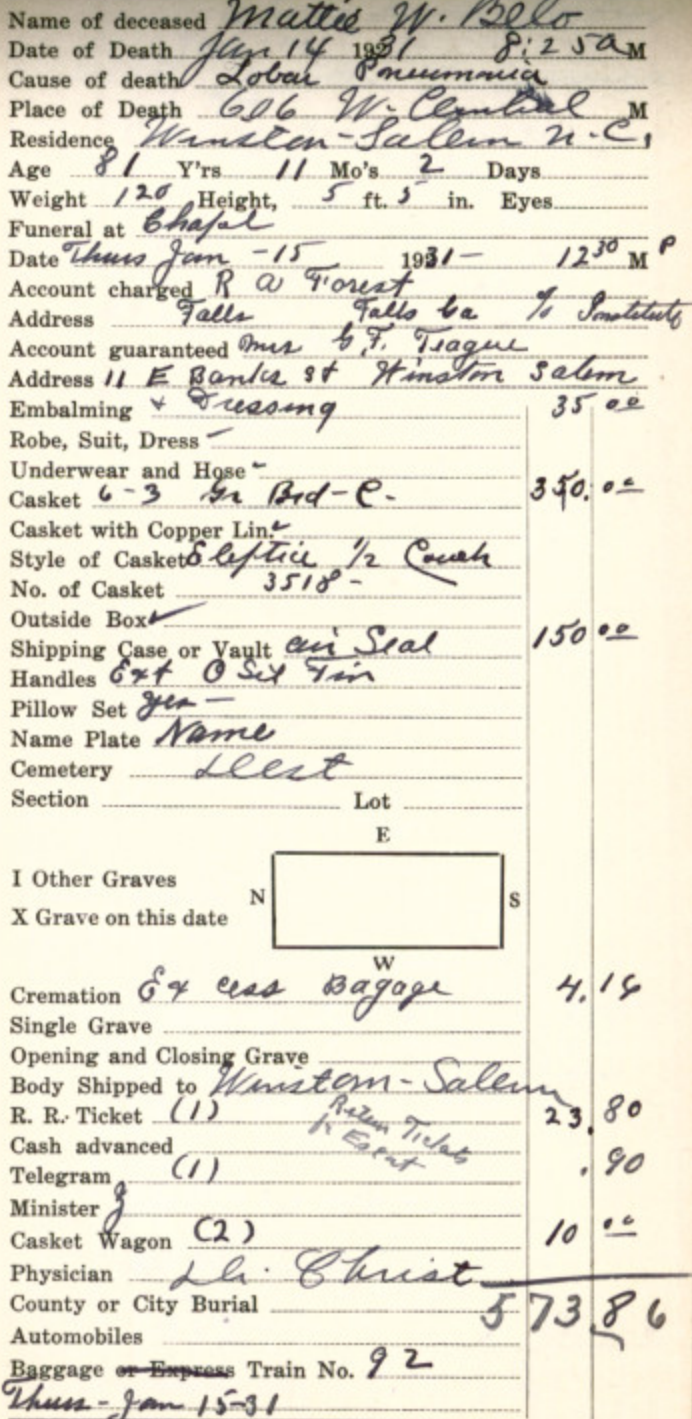 Name of deceased Mattie W. Belo
Date of Death Jan 14 1931 8:25 a M
Cause of death Lobar Pneumonia
Place of Death 606 W. Central M
Residence Winston-Salem N.C.
Age 81 Y'rs 11 Mo's 2 Days
Weight 120 Height, 5 ft. 5 in. Eyes
Funeral at Chapel
Date Thurs Jan -15 1931- 12 30 M P
Account charged R A Forest
Address Falls Falls Ga % Institute
Account guaranteed Mrs G. F. Teague
Address 11 E Banks St Winston Salem
Embalming & Dressing 35 00
Robe, Suit, Dress -
Underwear and Hose -
Casket 6-3 Gr Brd-C. 350.00
Casket with Copper Lin.
Style of Casket Eleptic 1/2 Couch
No. of Casket 3518-
Outside Box ✓
Shipping Case or Vault air Seal 150 00
Handles Ext O Sil Fin
Pillow Set yes -
Name Plate Name
Cemetery
Section Lot
E
I Other Graves
N S
X Grave on this date
W
Cremation Ex cess Bagage 4.16
Single Grave
Opening and Closing Grave
Body Shipped to Winstom-Salem
R. R. Ticket (1) Return Tickets 23.80
Cash advanced
Telegram (1) .90
Minister
Casket Wagon (2) 10 00
Physician Dr. Christ
County or City Burial 573.86
Automobiles
Baggage or Express Train No. 92
Thurs - Jan 15-31